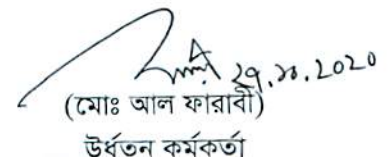 ২৭.১০.2020
(মোঃ আল ফারাবী)
উর্ধতন কর্মকর্তা